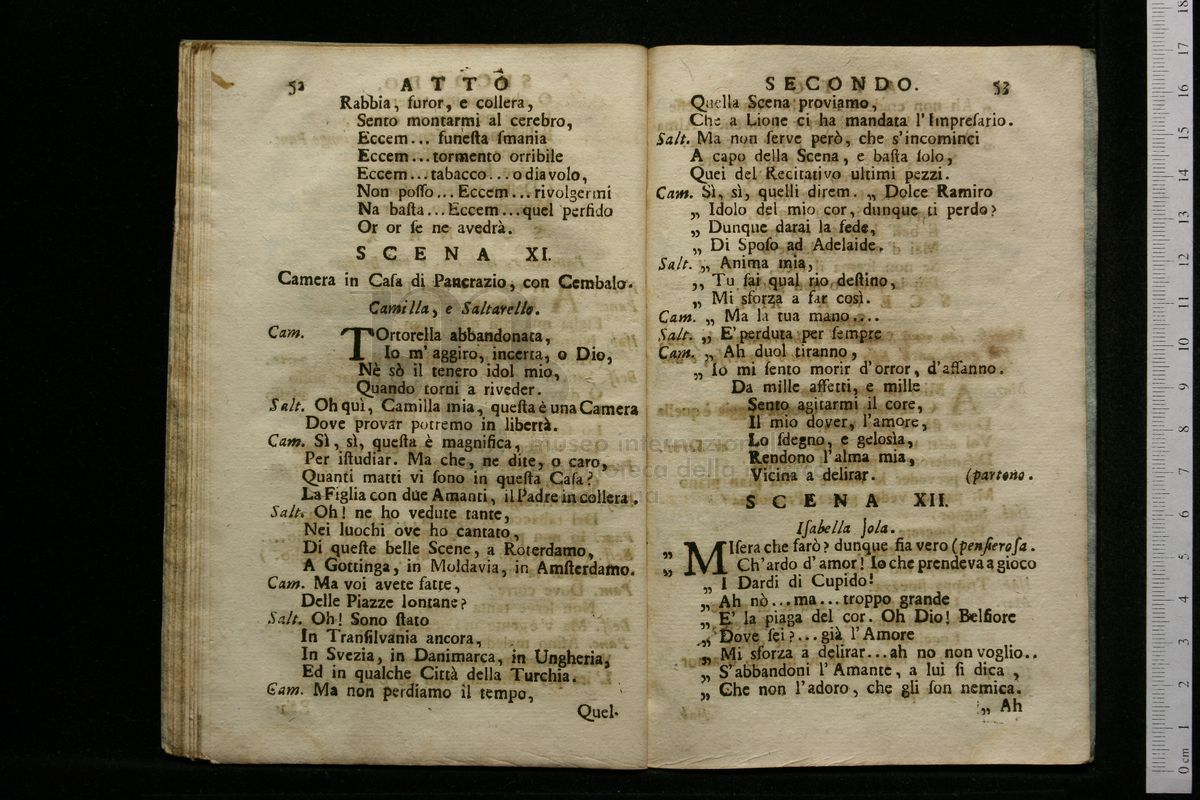 52 ATTO
Rabbia, furor, e collera,
Sento montarmi al cerebro,
Eccem... funeſta ſmania
Eccem... tormento orribile
Eccem... tabacco... o diavolo,
Non poſſo... Eccem... rivolgermi
Na baſta... Eccem... quel perfido
Or or ſe ne avedrà.
SCENA XI.
Camera in Caſa di Pancrazio, con Cembalo.
Camilla, e Saltarello.
Cam. TOrtorella abbandonata,
Io m'aggiro, incerta, o Dio,
Nè sò il tenero idol mio,
Quando torni a riveder.
Salt. Oh quì, Camilla mia, queſta è una Camera
Dove provar potremo in libertà.
Cam. Sì, sì, queſta è magnifica,
Per iſtudiar. Ma che, ne dite, o caro,
Quanti matti vi ſono in queſta Caſa?
La Figlia con due Amanti, il Padre in collera.
Salt. Oh! ne ho vedute tante,
Nei luochi ove ho cantato,
Di queſte belle Scene, a Roterdamo,
A Gottinga, in Moldavia, in Amſterdamo.
Cam. Ma voi avete fatte,
Delle Piazze lontane?
Salt. Oh! Sono ſtato
In Tranſilvania ancora,
In Svezia, in Danimarca, in Ungheria,
Ed in qualche Città della Turchia.
Cam. Ma non perdiamo il tempo,
Quel-
SECONDO. 53
Quella Scena proviamo,
Che a Lione ci ha mandata l'Impreſario.
Salt. Ma non ſerve però, che s'incominci
A capo della Scena, e baſta ſolo,
Quei del Recitativo ultimi pezzi.
Cam. Sì, sì, quelli direm. „ Dolce Ramiro
„ Idolo del mio cor, dunque ti perdo?
„ Dunque darai la fede,
„ Di Spoſo ad Adelaide.
Salt. „ Anima mia,
„ Tu ſai qual rio deſtino,
„ Mi sforza a far così.
Cam. „ Ma la tua mano....
Salt. „ E' perduta per ſempre
Cam. „ Ah duol tiranno,
„ Io mi ſento morir d'orror, d'affanno.
Da mille affetti, e mille
Sento agitarmi il core,
Il mio dover, l'amore,
Lo ſdegno, e geloſìa,
Rendono l'alma mia,
Vicina a delirar. (partono.
SCENA XII.
Iſabella ſola.
„ MIſera che farò? dunque fia vero (penſieroſa.
„ Ch'ardo d'amor! Io che prendeva a gioco
„ I Dardi di Cupido!
„ Ah nò... ma... troppo grande
„ E' la piaga del cor. Oh Dio! Belfiore
„ Dove ſei?... già l'Amore
„ Mi sforza a delirar... ah no non voglio..
„ S'abbandoni l'Amante, a lui ſi dica,
„ Che non l'adoro, che gli ſon nemica.
„ Ah
museo internazionale
0 cm 1 2 3 4 5 6 7 8 9 10 11 12 13 14 15 16 17 18